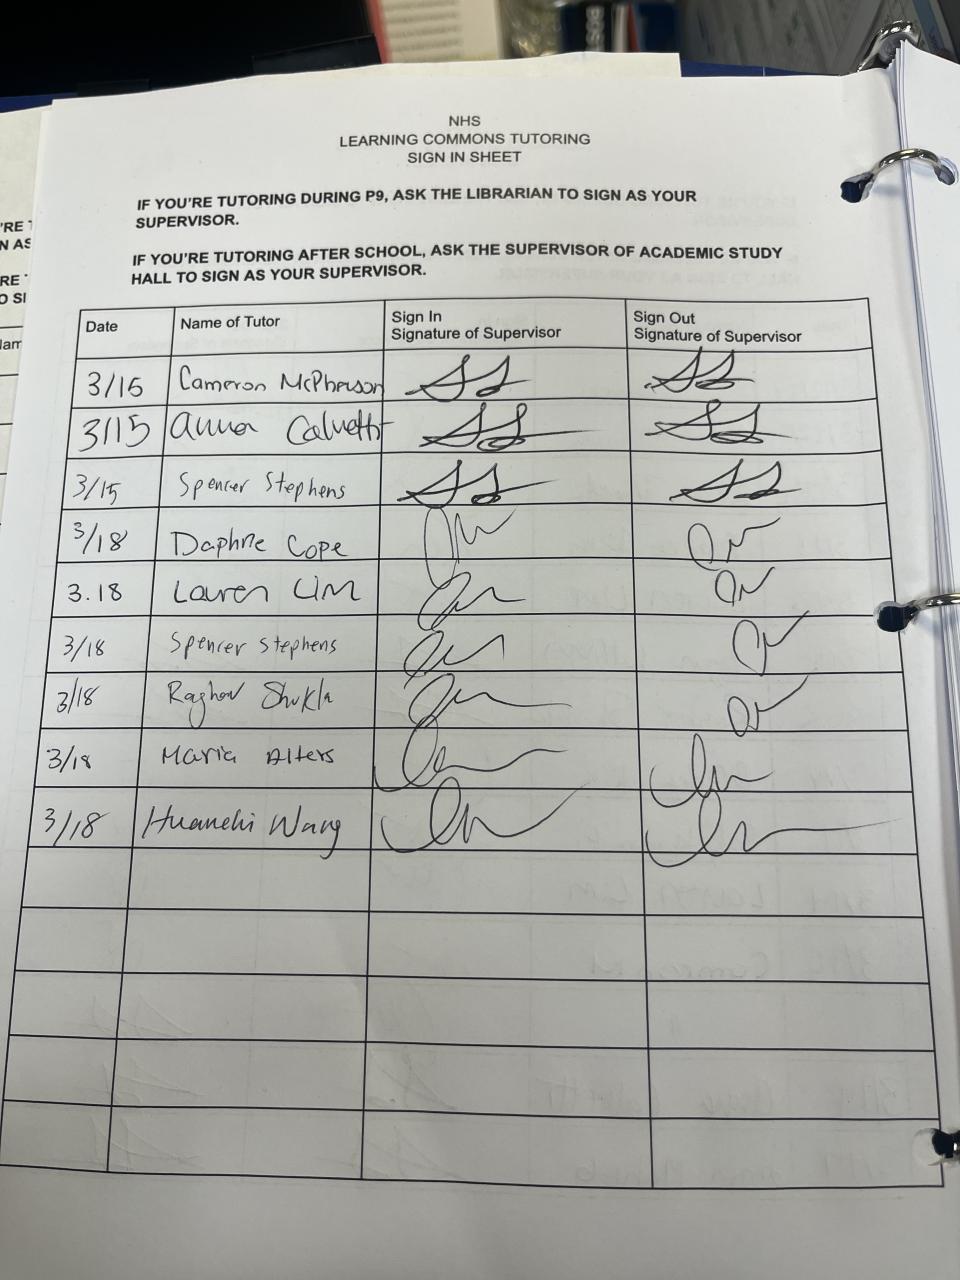 NHS
LEARNING COMMONS TUTORING
SIGN IN SHEET
IF YOU'RE TUTORING DURING P9, ASK THE LIBRARIAN TO SIGN AS YOUR
SUPERVISOR.
IF YOU'RE TUTORING AFTER SCHOOL, ASK THE SUPERVISOR OF ACADEMIC STUDY
HALL TO SIGN AS YOUR SUPERVISOR.
Date Name of Tutor Sign In Signature of Supervisor Sign Out Signature of Supervisor
3/15 Cameron McPherson
3/15 Anna Calvetti
3/15 Spencer Stephens
3/18 Daphne Cope
3.18 Lauren Lim
3/18 Spencer Stephens
3/18 Raghav Shukla
3/18 Maria Alters
3/18 Huanchi Wang